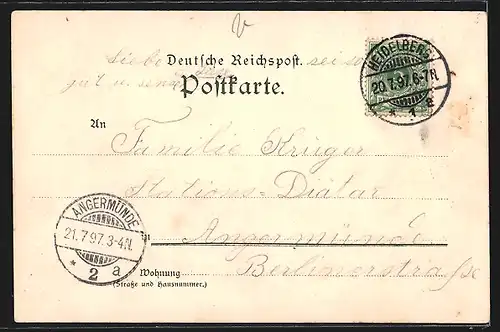 Liebe
Deutsche Reichspost.
sei so
gut u.
Postkarte.
HEIDELBERG
20.7.97.6-7N.
* 1 e
An
Familie Krüger
Stations-Diätar
Angermünde
Berlinerstraße
ANGERMÜNDE
21.7.97.3-4N.
* 2 a
Wohnung
(Straße und Hausnummer.)